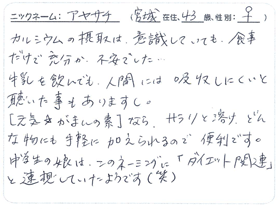 ニックネーム：アヤサチ （宮城 在住、43 歳、性別：♀）
カルシウムの摂取は、意識していても、食事
だけで充分か、不安でした…
牛乳を飲んでも、人間には吸収しにくいと
聴いた事もありますし。
［元気☆がまんの素］なら、サラリと溶け、どん
な物にも手軽に加えられるので便利です。
中学生の娘は、このネーミングに「ダイエット関連」
と連想していたようです（笑）